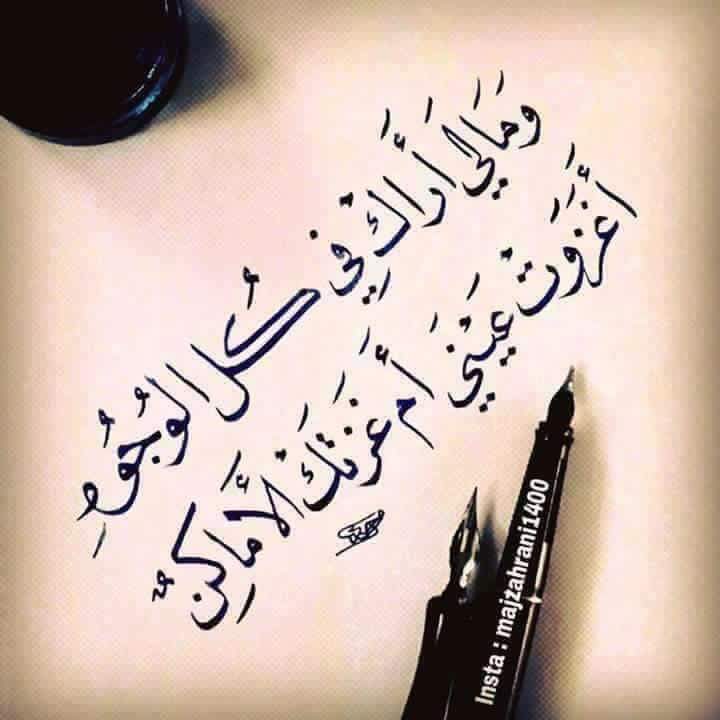 وَمَالِي أَرَاكِ فِي كُلِ الوُجُوهِ
أَغَزَوتَ عَيْنِي أَم غَزَتكَ الأَمَاكِنُ
Insta : majzahrani1400